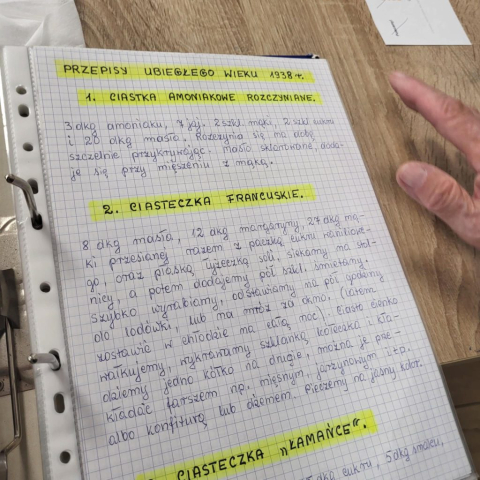 PRZEPISY UBIEGŁEGO WIEKU 1938 r.
1. CIASTKA AMONIAKOWE ROZCZYNIANE.
3 dkg amoniaku, 7 jaj, 2 szkl. mąki, 2 szkl. cukru
i 20 dkg masła. Rozczynia się na dobę
szczelnie przykrywając. Masło sklarowane, doda-
je się przy mięszeniu z mąką.
2. CIASTECZKA FRANCUSKIE.
8 dkg masła, 12 dkg margaryny, 27 dkg mą-
ki przesianej razem z paczką cukru waniliowe-
go, oraz płaską łyżeczką soli, siekamy na stol-
nicy, a potem dodajemy pół szkl. śmietany.
Szybko wyrabiamy, odstawiamy na pół godziny
do lodówki, lub na mróz za okno. (latem
zostawić w chłodzie na całą noc). Ciasto cienko
wałkujemy, wykrawamy szklanką kółeczka i kła-
dziemy jedno kółko na drugie, można je prze-
kładać farszem np. mięsnym, jarzynowym itp.
albo konfiturą lub dżemem. Pieczemy na jasny kolor.
CIASTECZKA „ŁAMAŃCE”.
dkg cukru, 5 dkg smalcu,